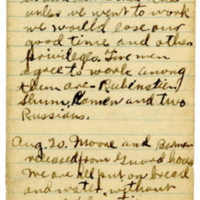 unless we went to work
we would lose our
good time and other
privileges. Two men
agree to work among
them are - Rubenstein,
Shum, Lemen and two
Russians.
Aug. 20. Moore and
released from
We are all put on bread
and water, without